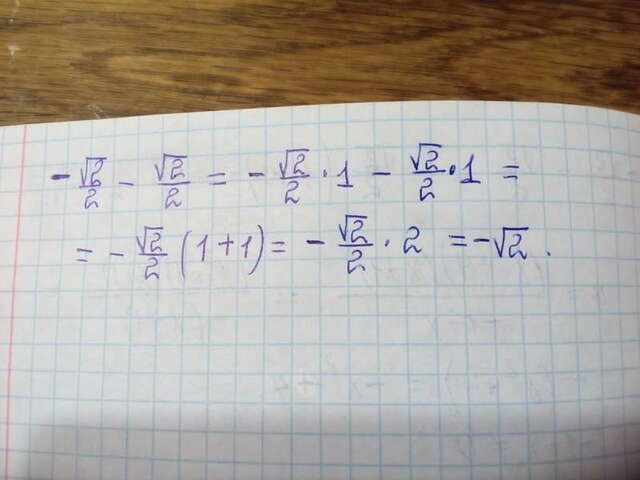 -√2/2 - √2/2 = -√2/2 · 1 - √2/2 · 1 =
= -√2/2 (1+1) = -√2/2 · 2 = -√2.